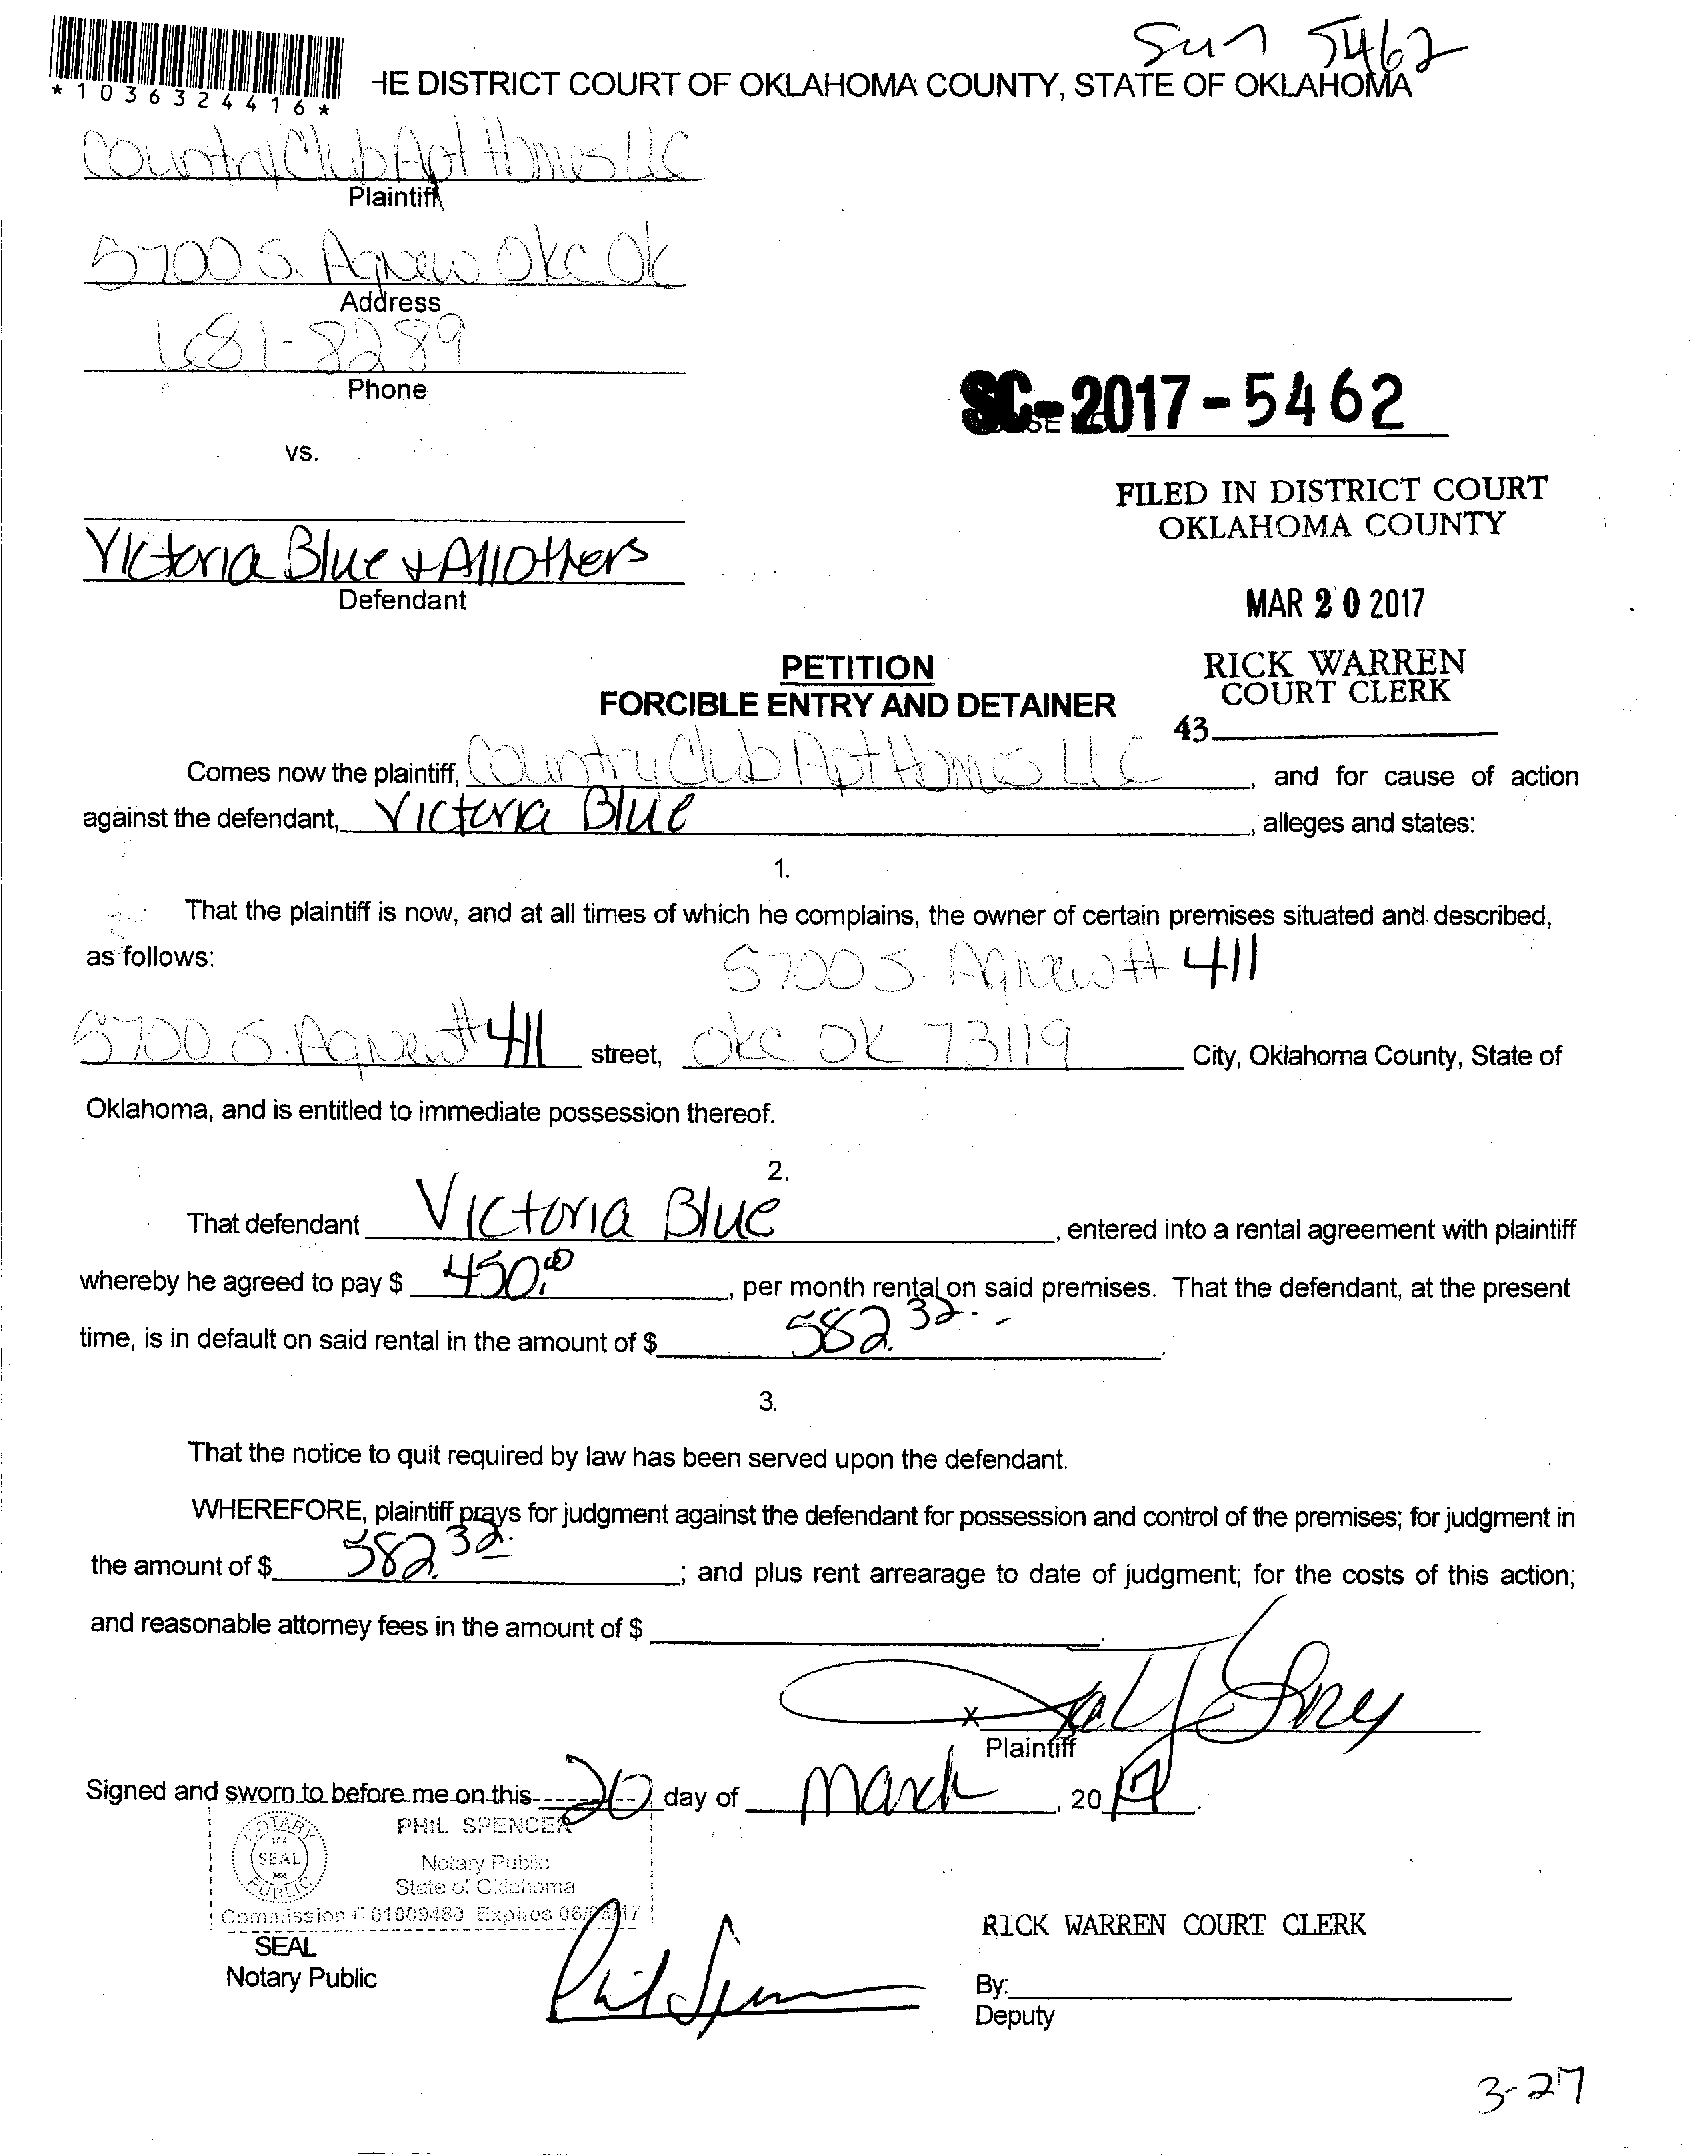 Sun 5462
*1036324416*
HE DISTRICT COURT OF OKLAHOMA COUNTY, STATE OF OKLAHOMA
Country Club Apt Homes LLC
Plaintiff
5700 S. Agnew Okc Ok
Address
681-8289
Phone
SC-2017-5462
vs.
FILED IN DISTRICT COURT
OKLAHOMA COUNTY
Victoria Blue + All Others
Defendant
MAR 20 2017
PETITION
RICK WARREN
COURT CLERK
FORCIBLE ENTRY AND DETAINER
43
Comes now the plaintiff, Country Club Apt Homes LLC, and for cause of action
against the defendant, Victoria Blue, alleges and states:
1.
That the plaintiff is now, and at all times of which he complains, the owner of certain premises situated and described,
as follows: 5700 S. Agnew # 411
5700 S. Agnew # 411 street, Okc Ok 73119 City, Oklahoma County, State of
Oklahoma, and is entitled to immediate possession thereof.
2.
That defendant Victoria Blue, entered into a rental agreement with plaintiff
whereby he agreed to pay $ 450.00, per month rental on said premises. That the defendant, at the present
time, is in default on said rental in the amount of $ 582.32.
3.
That the notice to quit required by law has been served upon the defendant.
WHEREFORE, plaintiff prays for judgment against the defendant for possession and control of the premises; for judgment in
the amount of $ 582.32; and plus rent arrearage to date of judgment; for the costs of this action;
and reasonable attorney fees in the amount of $
x
Plaintiff
Signed and sworn to before me on this 20 day of March, 2017.
PHIL SPENCER
Notary Public
State of Oklahoma
Commission # 01009480 Expires
NOTARY PUBLIC SEAL
SEAL
Notary Public
Phil Spencer
RICK WARREN COURT CLERK
By:
Deputy
3-27